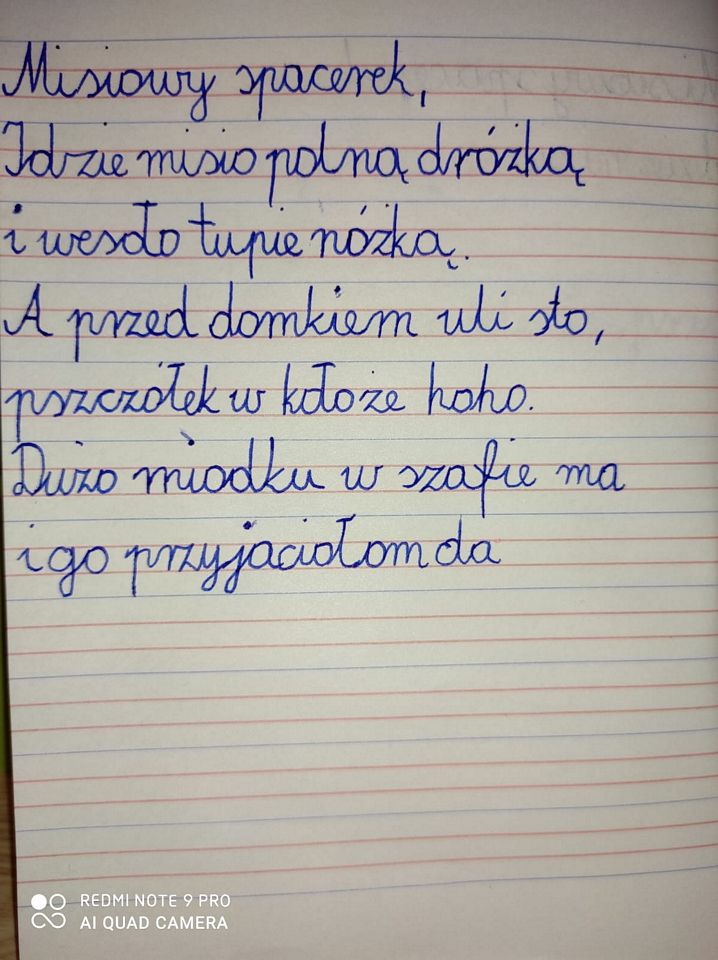 Misiowy spacerek,
Idzie misio polną dróżką
i wesoło tupie nóżką.
A przed domkiem uli sto,
pszczółek w koło że hoho.
Dużo miodku w szafie ma
i go przyjaciołom da
REDMI NOTE 9 PRO
AI QUAD CAMERA